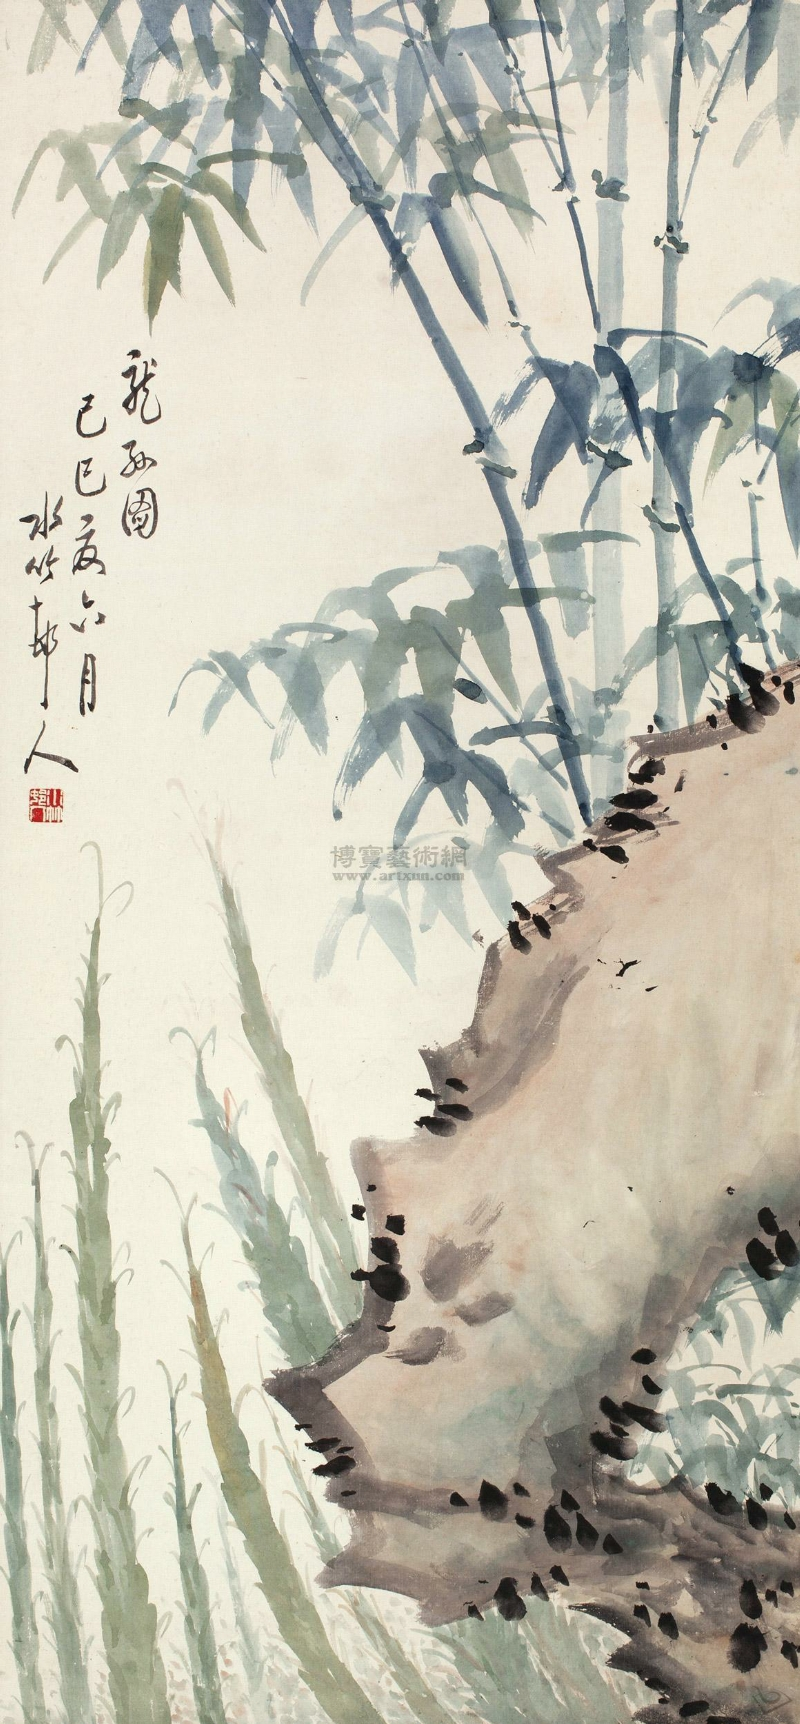 龍孫图
己巳夏六月
水竹邨人
博寶藝術網
www.artxun.com